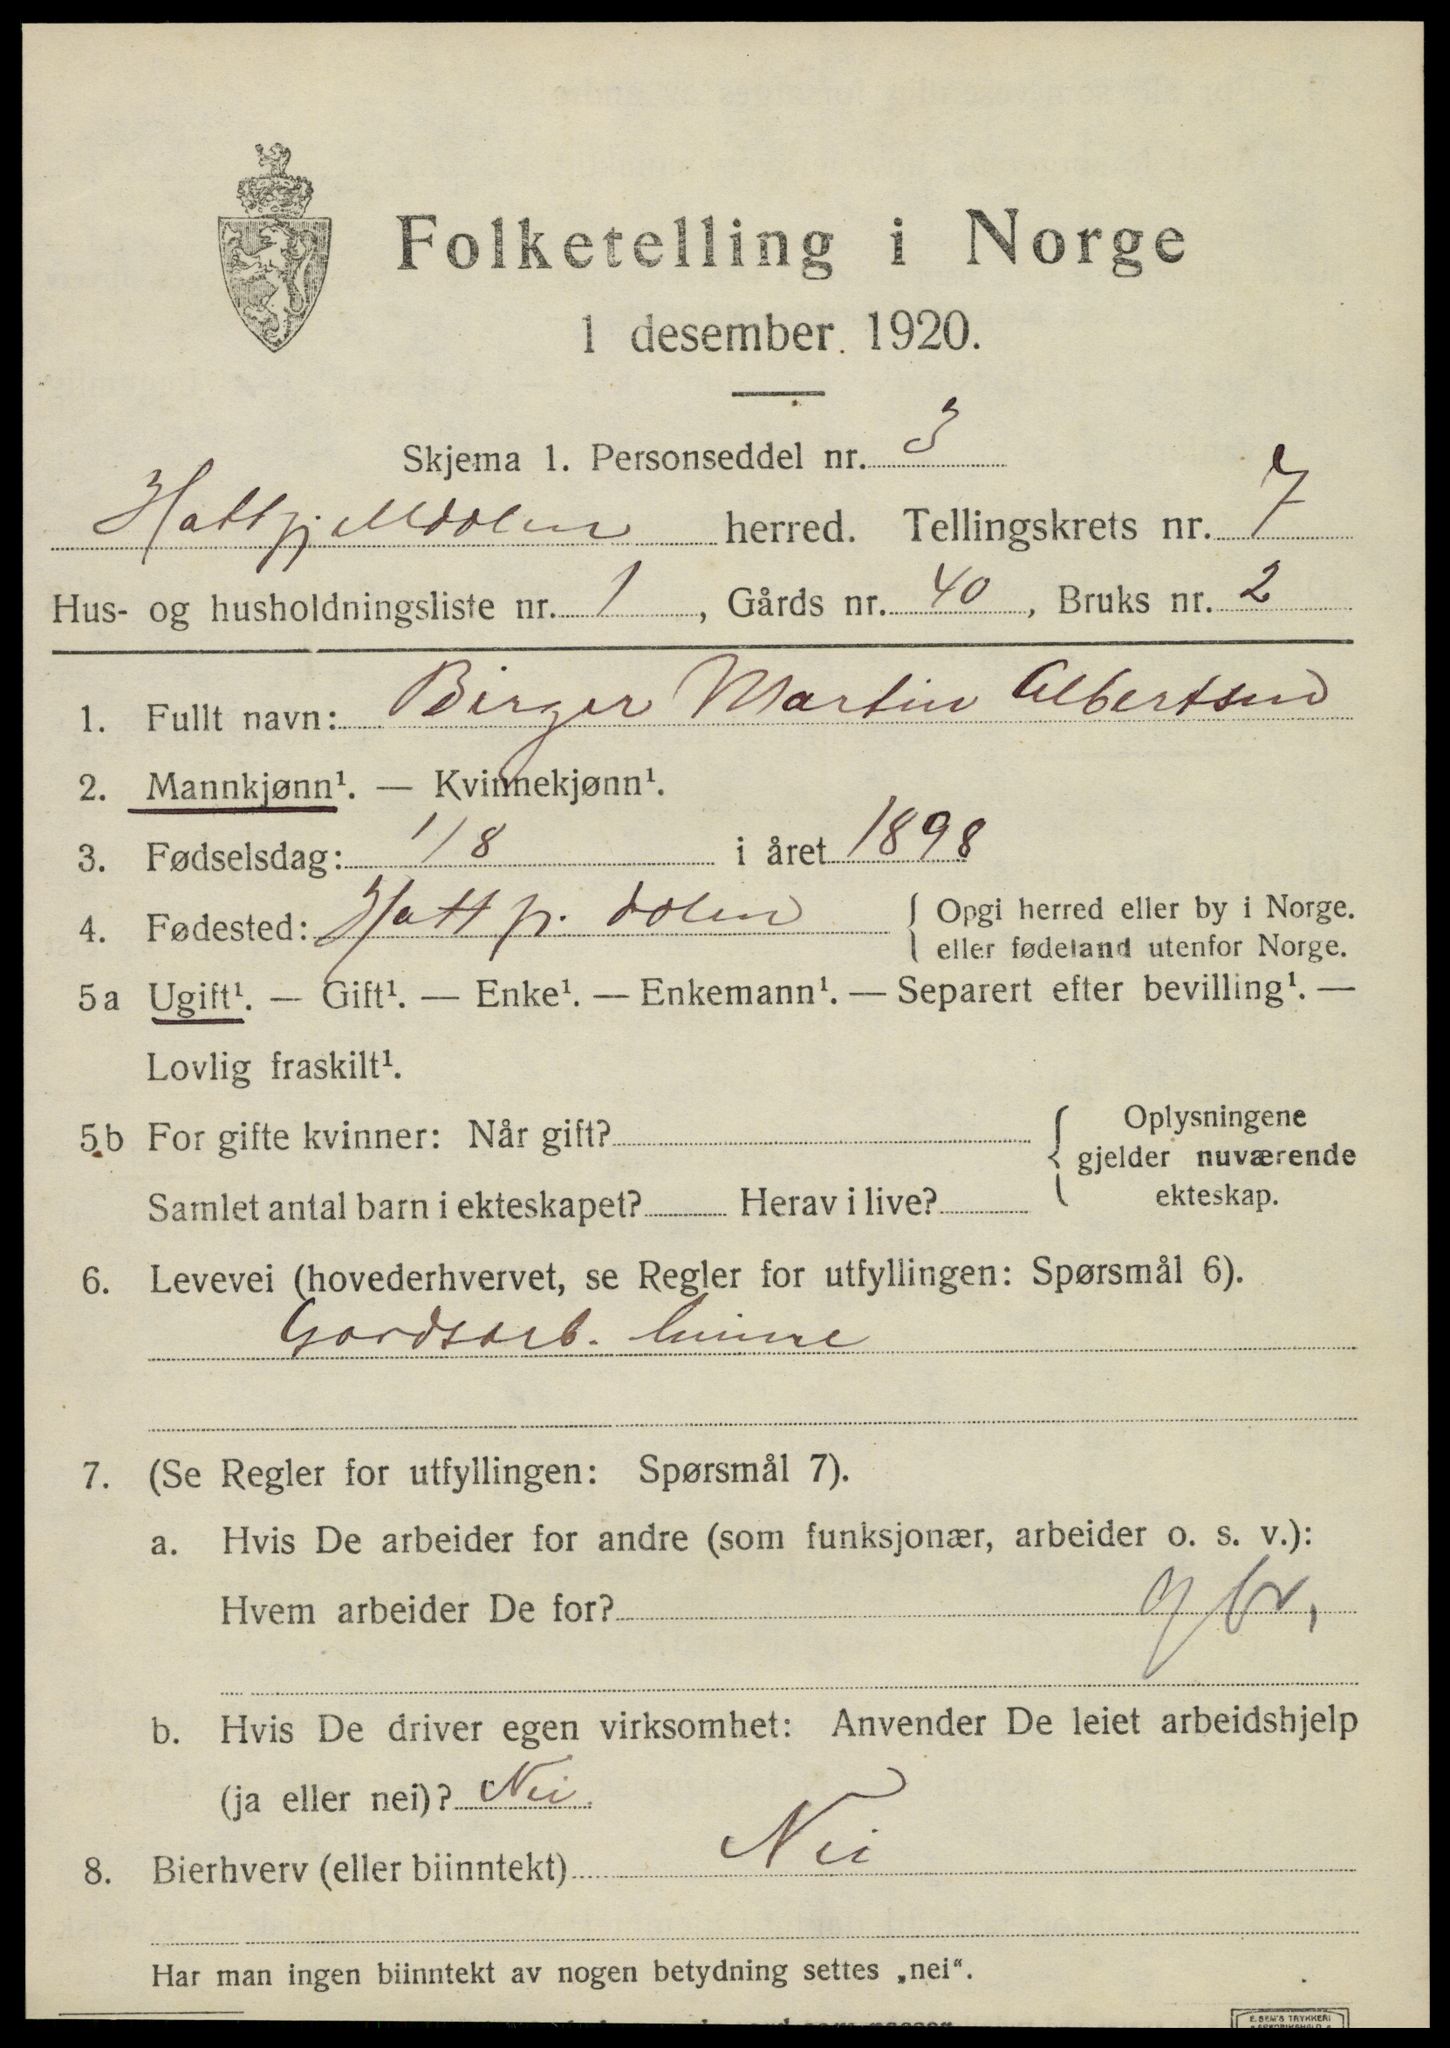 Folketelling i Norge
1 desember 1920.
Skjema 1. Personseddel nr. 3
Hattfjelldalen herred. Tellingskrets nr. 7
Hus- og husholdningsliste nr. 1, Gårds nr. 40, Bruks nr. 2
1. Fullt navn: Birger Martin Albertsen
2. Mannkjønn¹. — Kvinnekjønn¹.
3. Fødselsdag: 1/8 i året 1898
4. Fødested: Hattfj. dalen { Opgi herred eller by i Norge.
eller fødeland utenfor Norge.
5a Ugift¹. — Gift¹. — Enke¹. — Enkemann¹. — Separert efter bevilling¹. —
Lovlig fraskilt¹.
5b For gifte kvinner: Når gift? { Oplysningene
gjelder nuværende
Samlet antal barn i ekteskapet? Herav i live? ekteskap.
6. Levevei (hovederhvervet, se Regler for utfyllingen: Spørsmål 6).
Gårdsarb. hjemme
7. (Se Regler for utfyllingen: Spørsmål 7).
a. Hvis De arbeider for andre (som funksjonær, arbeider o. s. v.):
Hvem arbeider De for? gbr,
b. Hvis De driver egen virksomhet: Anvender De leiet arbeidshjelp
(ja eller nei)? Nei.
8. Bierhverv (eller biinntekt) Nei
Har man ingen biinntekt av nogen betydning settes „nei“.
E. SEM'S TRYKKERI